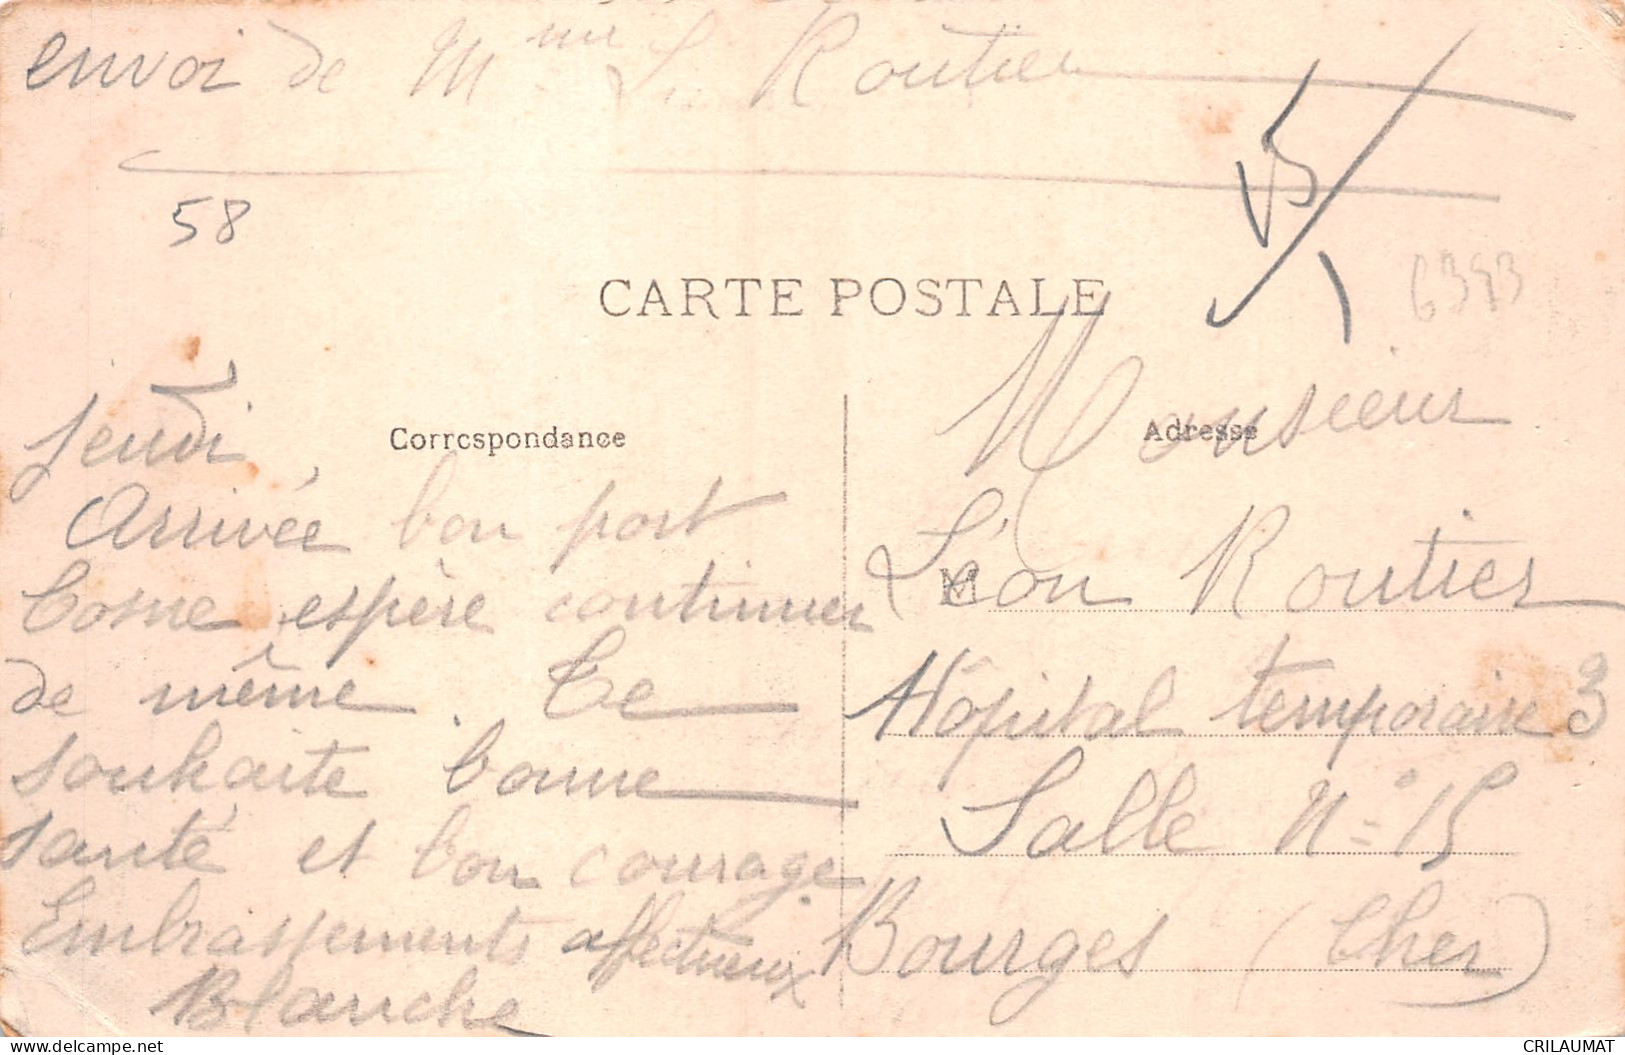 envoi de Mme L. Routier
58
CARTE POSTALE
6393
Correspondance
Adresse
Jeudi
Arrivée bon port
Cosne espère continuer
de même. Te
souhaite bonne
santé et bon courage
Embrassements affectueux
Blanche
Monsieur
M
Léon Routier
Hôpital temporaire 3
Salle N° 15
Bourges (Cher)
CRILAUMAT
delcampe.net